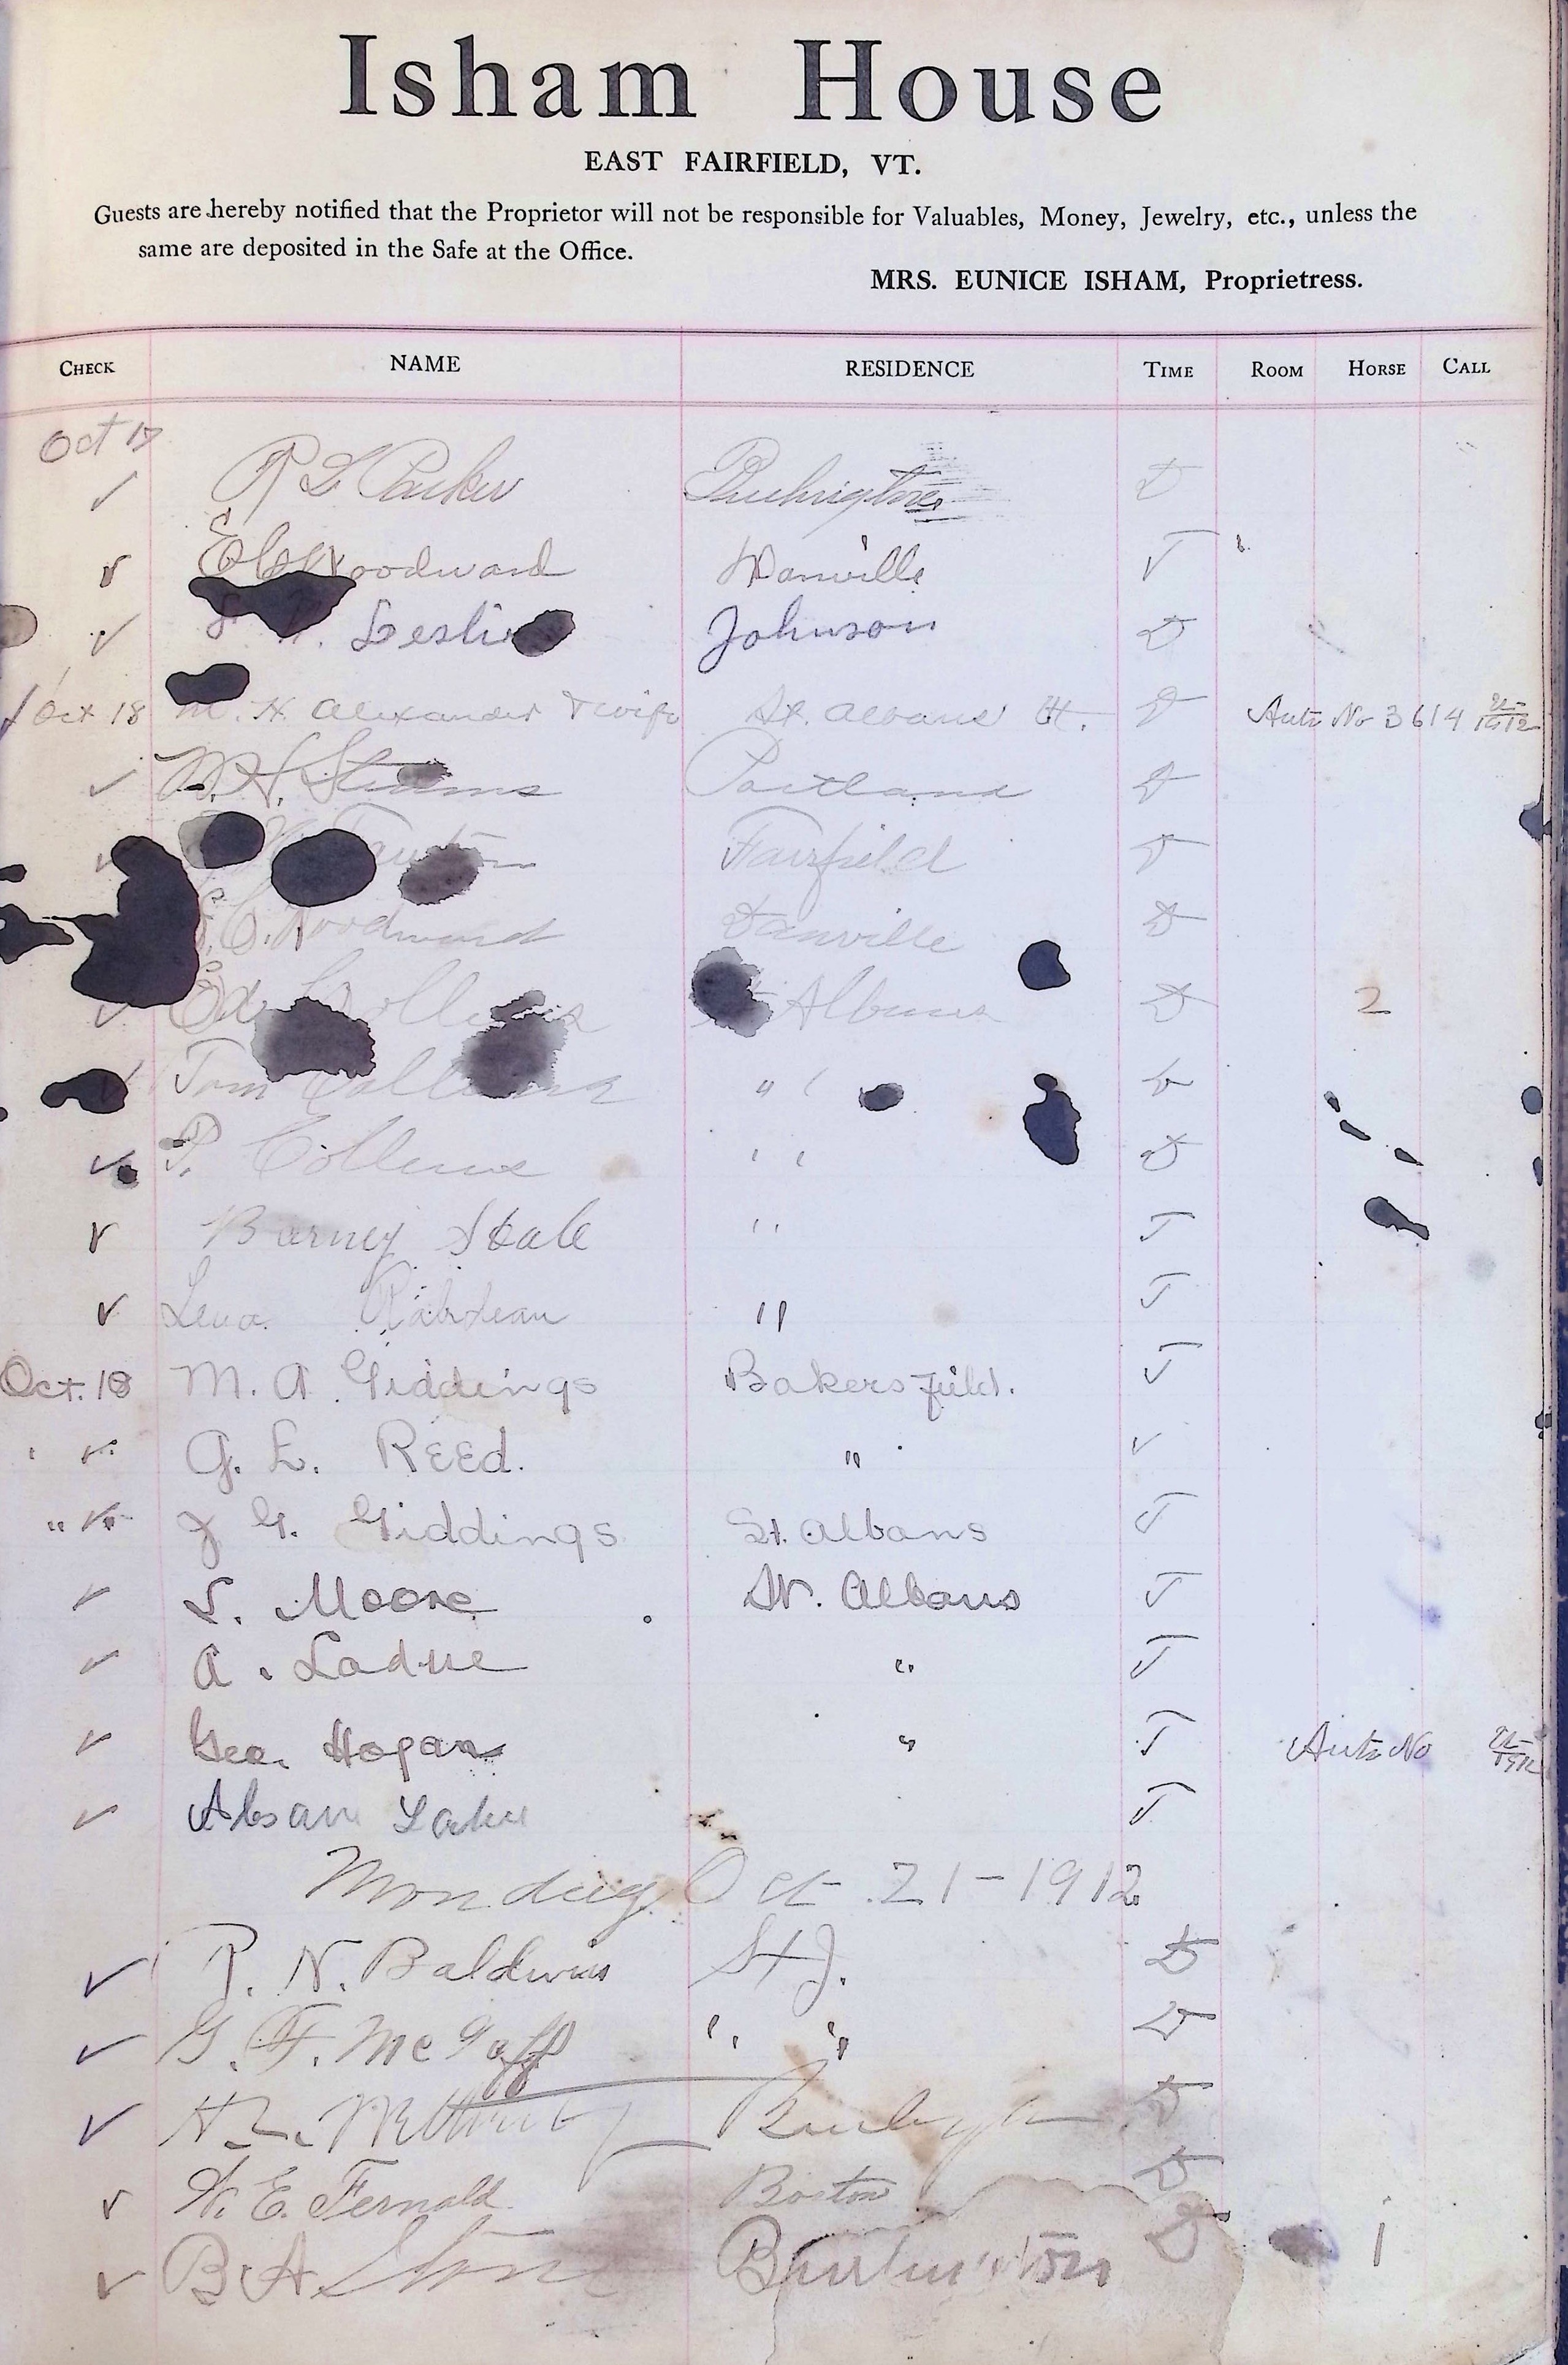 Isham House
EAST FAIRFIELD, VT.
Guests are hereby notified that the Proprietor will not be responsible for Valuables, Money, Jewelry, etc., unless the
same are deposited in the Safe at the Office.
MRS. EUNICE ISHAM, Proprietress.
CHECK NAME RESIDENCE TIME ROOM HORSE CALL
Oct 17
Parker
E C Woodward Danville
Leslie Johnson D
Oct 18 M. H. Alexander & wife St. Albans Vt. D Auto No 3614 Vt 1912
M. H. Portland D
Fairfield
E. C. Woodward Danville D
Ed Collins St Albans D 2
Tom Collins "
P. Collins " D
Barney " T
Lena "
Oct. 18 M. A. Giddings Bakersfield. T
G. L. REEd. "
" J G. Giddings St. Albans T
S. Moore St. Albans T
A. Ladue " T
Geo. Hogan " T Auto No Vt 1912
T
Monday Oct. 21-1912
P. N. Baldwin St J. D
G. F. McGaff " " D
D
W. E. Fernald Boston D
B A Stone Burlington D 1